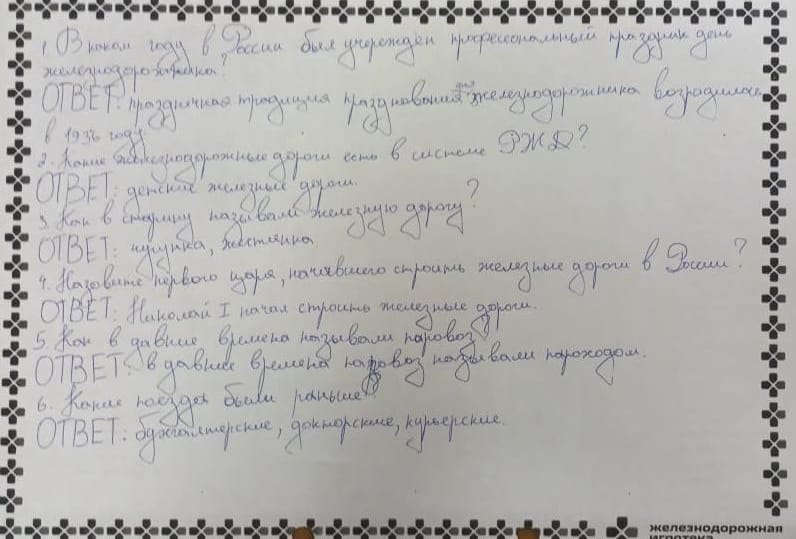 1. В каком году в России был учрежден профессиональный праздник день
железнодорожника?
ОТВЕТ: праздничная традиция празднования дня железнодорожника возродилась
в 1936 году.
2. Какие железнодорожные дороги есть в системе РЖД?
ОТВЕТ: детские железные дороги.
3. Как в старину называли железную дорогу?
ОТВЕТ: чугунка, жестянка
4. Назовите первого царя, начавшего строить железные дороги в России?
ОТВЕТ: Николай I начал строить железные дороги.
5. Как в давние времена называли паровоз?
ОТВЕТ: в давние времена паровоз называли пароходом.
6. Какие поезда были раньше?
ОТВЕТ: бухгалтерские, докторские, курьерские.
железнодорожная
игротека